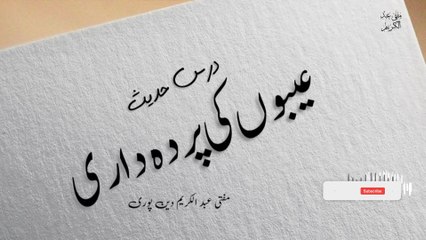 درس حدیث
عیبوں کی پردہ داری
مفتی عبد الکریم دین پوری
Subscribe